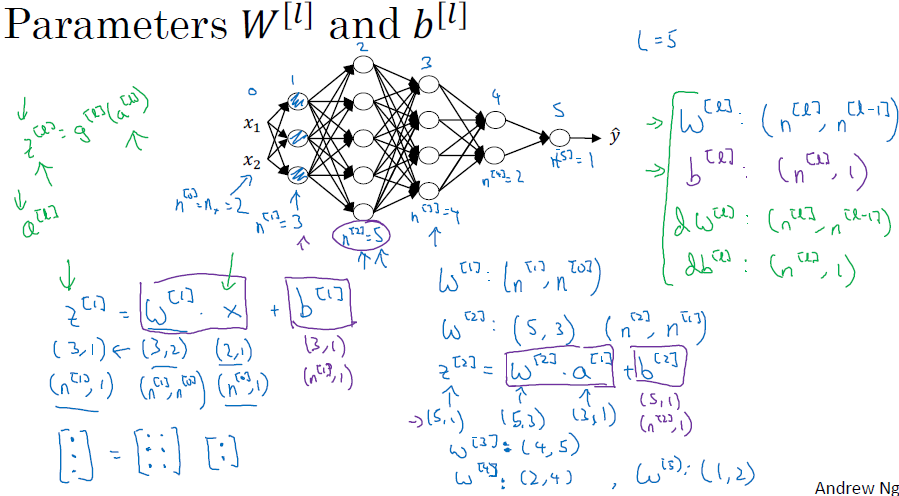 Parameters W^[l] and b^[l]
L = 5
0 1 2 3 4 5
x₁
x₂
ŷ
z^[l] = g^[l](a^[l])
a^[l]
n^[0] = nₓ = 2
n^[1] = 3
n^[2] = 5
n^[3] = 4
n^[4] = 2
n^[5] = 1
→ W^[l] : (n^[l], n^[l-1])
→ b^[l] : (n^[l], 1)
dW^[l] : (n^[l], n^[l-1])
db^[l] : (n^[l], 1)
z^[1] = W^[1] · x + b^[1]
(3,1) ← (3,2) (2,1) (3,1)
(n^[1], 1) (n^[1], n^[0]) (n^[0], 1) (n^[1], 1)
[⋮] = [⋮ ⋮] [:]
W^[1] : (n^[1], n^[0])
W^[2] : (5, 3) (n^[2], n^[1])
z^[2] = W^[2] · a^[1] + b^[2]
→ (5,1) (5,3) (3,1) (5,1)
(n^[2], 1)
W^[3] : (4, 5)
W^[4] : (2, 4) , W^[5] : (1, 2)
Andrew Ng